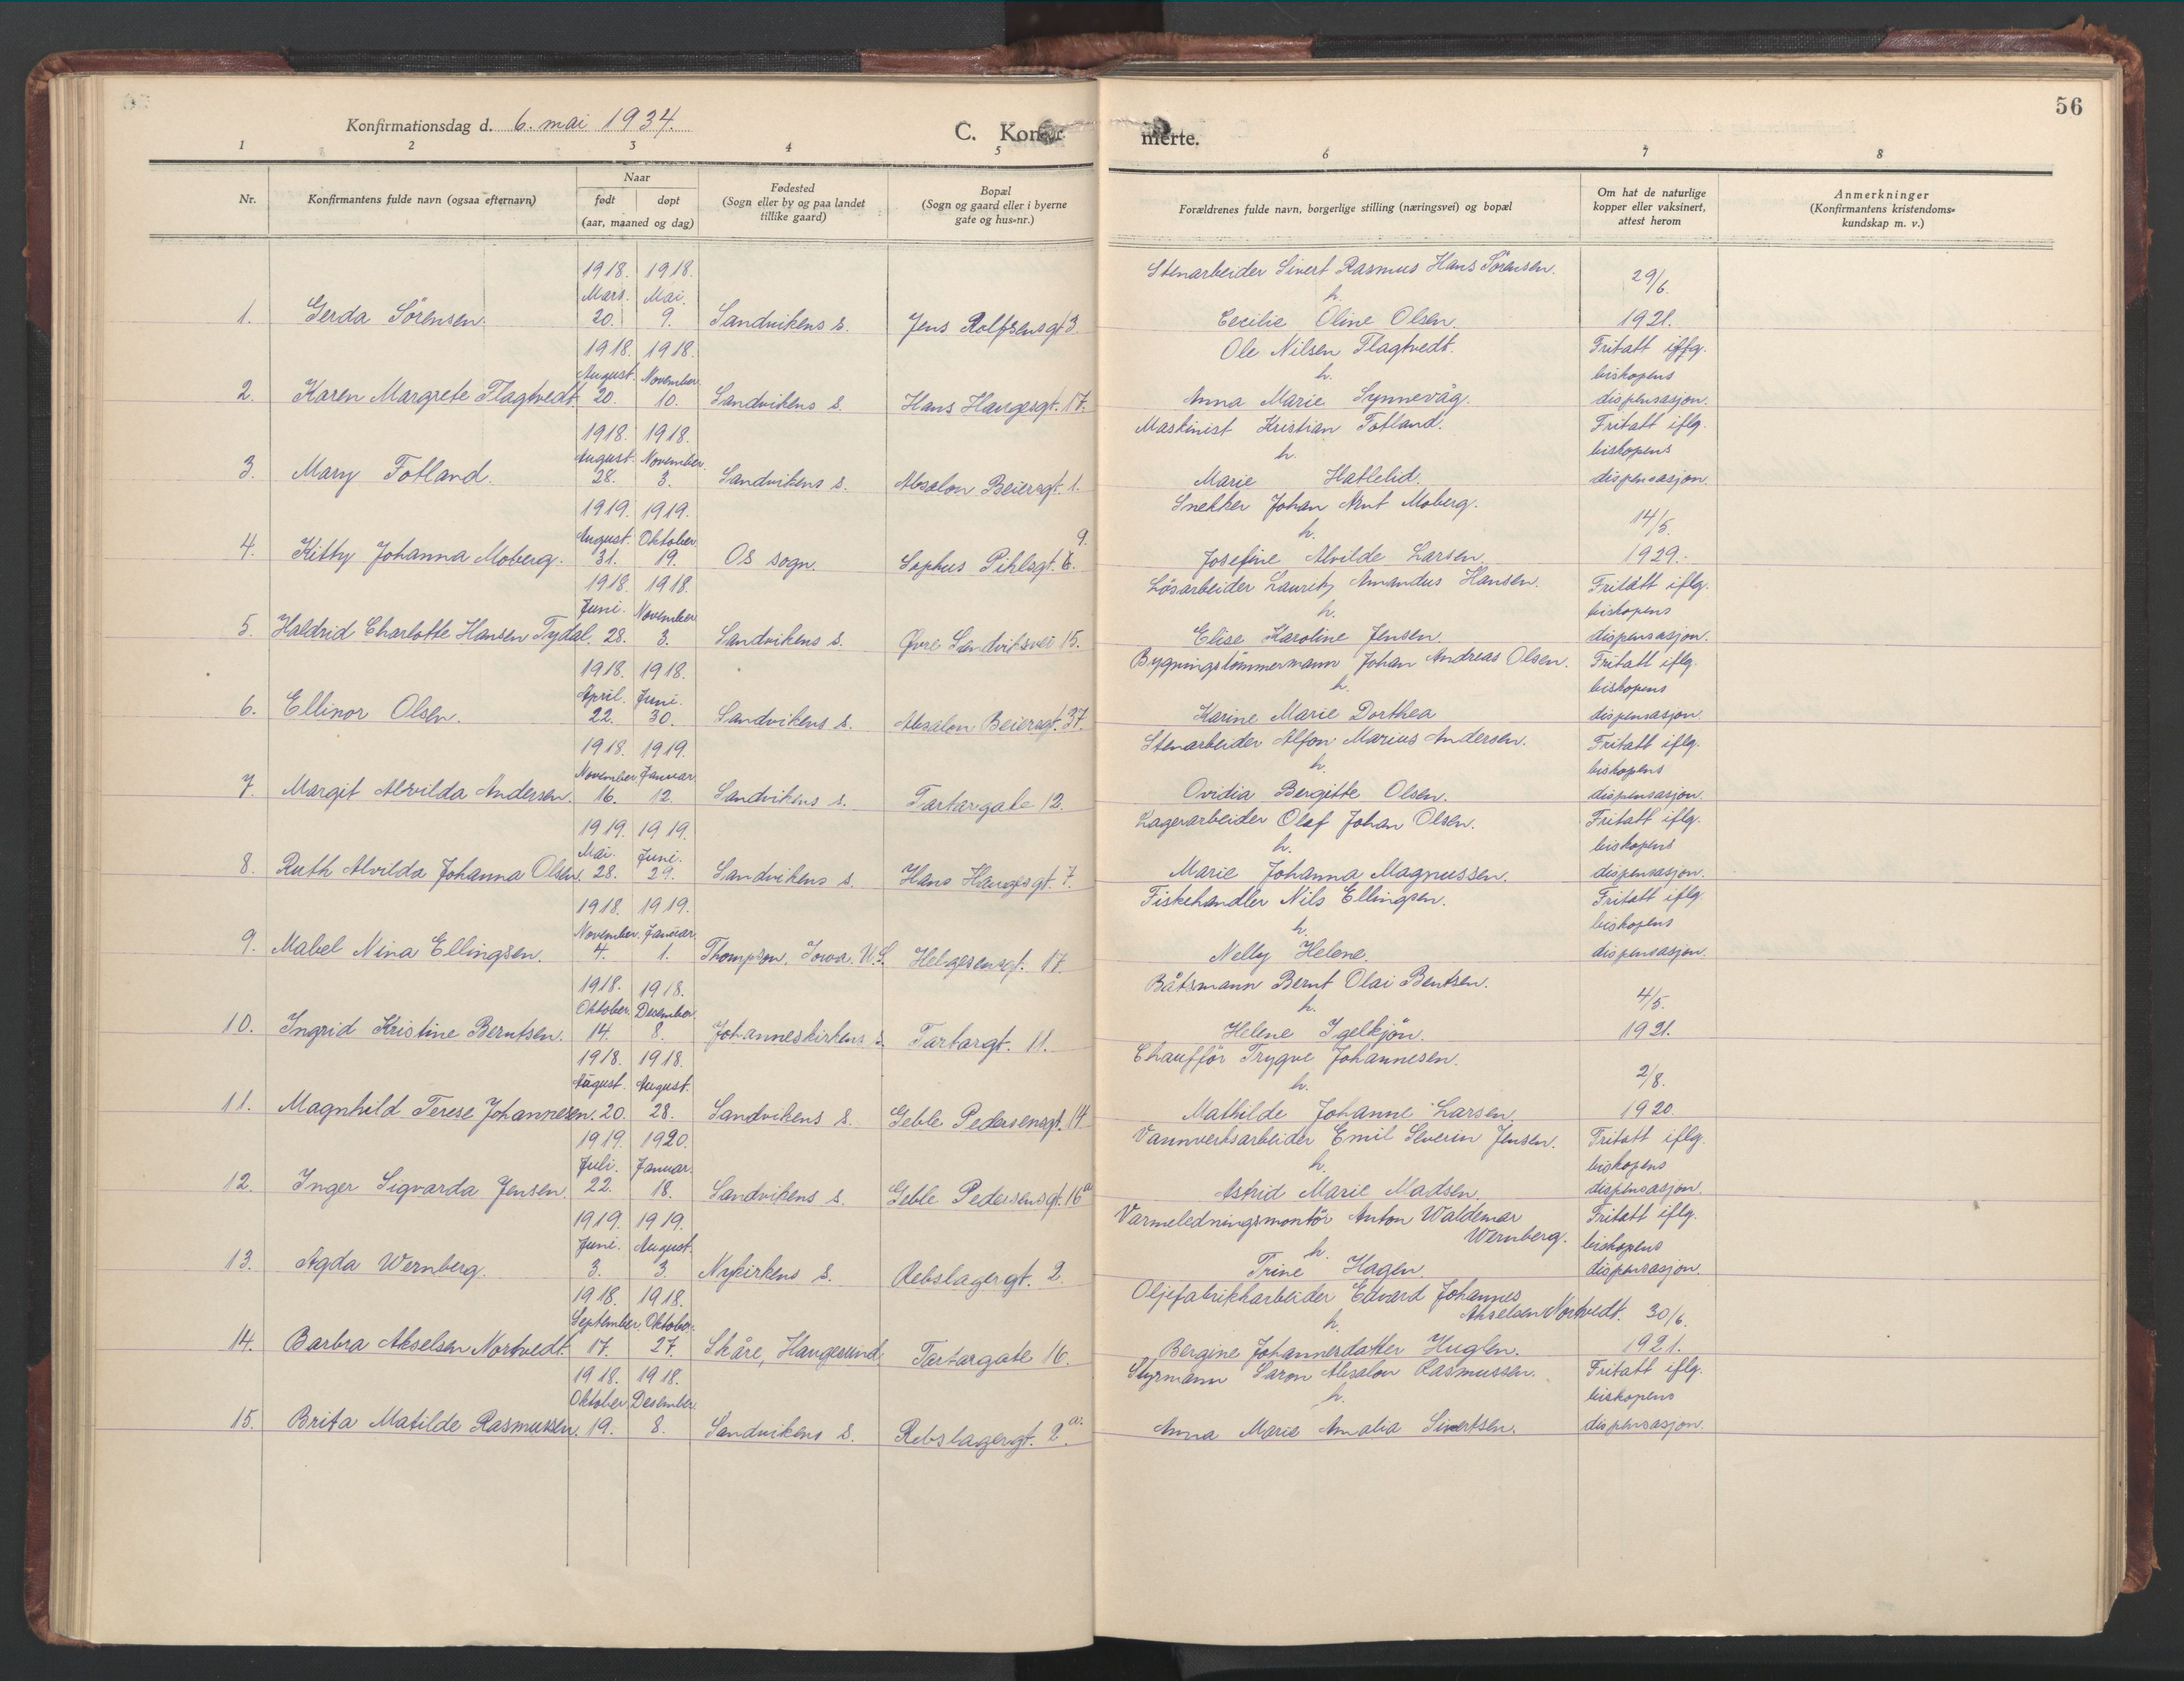 56
Konfirmationsdag d. 6. mai 1934.
C. Kon merte.
1 2 3 4 5 6 7 8
Nr.
Konfirmantens fulde navn (ogsaa efternavn)
Naar
født døpt
(aar, maaned og dag)
Fødested
(Sogn eller by og paa landet
tillike gaard)
Bopæl
(Sogn og gaard eller i byerne
gate og hus-nr.)
Forældrenes fulde navn, borgerlige stilling (næringsvei) og bopæl
Om hat de naturlige
kopper eller vaksinert,
attest herom
Anmerkninger
(Konfirmantens kristendoms-
kundskap m. v.)
1918. 1918. Stenarbeider Sivert Rasmus Hans Sörensen.
Mars. Mai. h. 29/6.
1. Gerda Sörensen. 20. 9. Sandvikens s. Jens Rolfsensgt 3. Cecilie Oline Olsen. 1921.
1918. 1918. Ole Nilsen Flagtvedt. Fritatt iflg.
August. November. h. biskopens
2. Karen Margrete Flagtvedt. 20. 10. Sandvikens s. Hans Haugesgt. 17. Anna Marie Synnevåg. dispensasjon.
1918. 1918. Maskinist Kristian Totland. Fritatt iflg.
August. November. h. biskopens
3. Mary Totland. 28. 3. Sandvikens s. Absalon Beiersgt. 1. Marie Hatlelid. dispensasjon.
1919. 1919. Snekker Johan Knut Moberg.
August. Oktober. 9. h. 14/5.
4. Kitty Johanna Moberg. 31. 19. Os sogn. Sophus Pihlsgt. 6. Josefine Alvilde Larsen. 1929.
1918. 1918. Lösarbeider Lauritz Amandus Hansen. Fritatt iflg.
Juni. November h. biskopens
5. Haldrid Charlotte Hansen Tydal. 28. 3. Sandvikens s. Øvre Sandviksvei 15. Elise Karoline Jensen. dispensasjon.
1918. 1918. Bygningstömmermann Johan Andreas Olsen. Fritatt iflg.
April. Juni. h. biskopens
6. Ellinor Olsen. 22. 30. Sandvikens s. Absalon Beiersgt. 37. Karine Marie Dorthea dispensasjon.
1918. 1919. Stenarbeider Alfon Marius Andersen. Fritatt iflg.
November Januar. h. biskopens
7. Margit Alvilda Andersen. 16. 12. Sandvikens s. Tartargate 12. Ovidia Bergitte Olsen. dispensasjon.
1919. 1919. Lagerarbeider Olaf Johan Olsen. Fritatt iflg.
Mai. Juni. h. biskopens
8. Ruth Alvilda Johanna Olsen. 28. 29. Sandvikens s. Hans Haugesgt. 7. Marie Johanna Magnussen. dispensasjon.
1918. 1919. Fiskehandler Nils Ellingsen. Fritatt iflg.
November. Januar. h. biskopens
9. Mabel Nina Ellingsen. 4. 1. Thompson, Iowa. U.S. Helgesensgt. 17. Nelly Helene. dispensasjon.
1918. 1918. Båtsmann Bernt Olai Bentsen.
Oktober. Desember. h. 4/5.
10. Ingrid Kristine Berntsen. 14. 8. Johanneskirkens s. Tartargt. 11. Helene Igelkjön. 1921.
1918. 1918. Chauffför Trygve Johannesen.
August. August. h. 2/8.
11. Magnhild Terese Johannesen. 20. 28. Sandvikens s. Geble Pedersensgt. 14. Mathilde Johanne Larsen. 1920.
1919. 1920. Vannverksarbeider Emil Severin Jensen. Fritatt iflg.
Juli. Januar. h. biskopens
12. Inger Sigvarda Jensen. 22. 18. Sandvikens s. Geble Pedersensgt. 16a Astrid Marie Madsen. dispensasjon.
1919. 1919. Varmeledningsmontör Anton Waldemar Fritatt iflg.
Juni. August. h. Wernberg. biskopens
13. Agda Wernberg. 3. 3. Nykirkens s. Rebslagergt. 2. Trine Hagen. dispensasjon.
1918. 1918. Oljefabrikkarbeider Edvard Johannes
September. Oktober. h. Akselsen Nortvedt. 30/6.
14. Barbra Akselsen Nortvedt. 17. 27. Skåre, Haugesund. Tartargate 16. Bergine Johannesdatter Huglen. 1921.
1918. 1918. Styrmann Sarm Absalon Rasmussen. Fritatt iflg.
Oktober. Desember. h. biskopens
15. Brita Matilde Rasmussen. 19. 8. Sandvikens s. Rebslagergt. 2a. Anna Marie Amalia Sivertsen. dispensasjon.